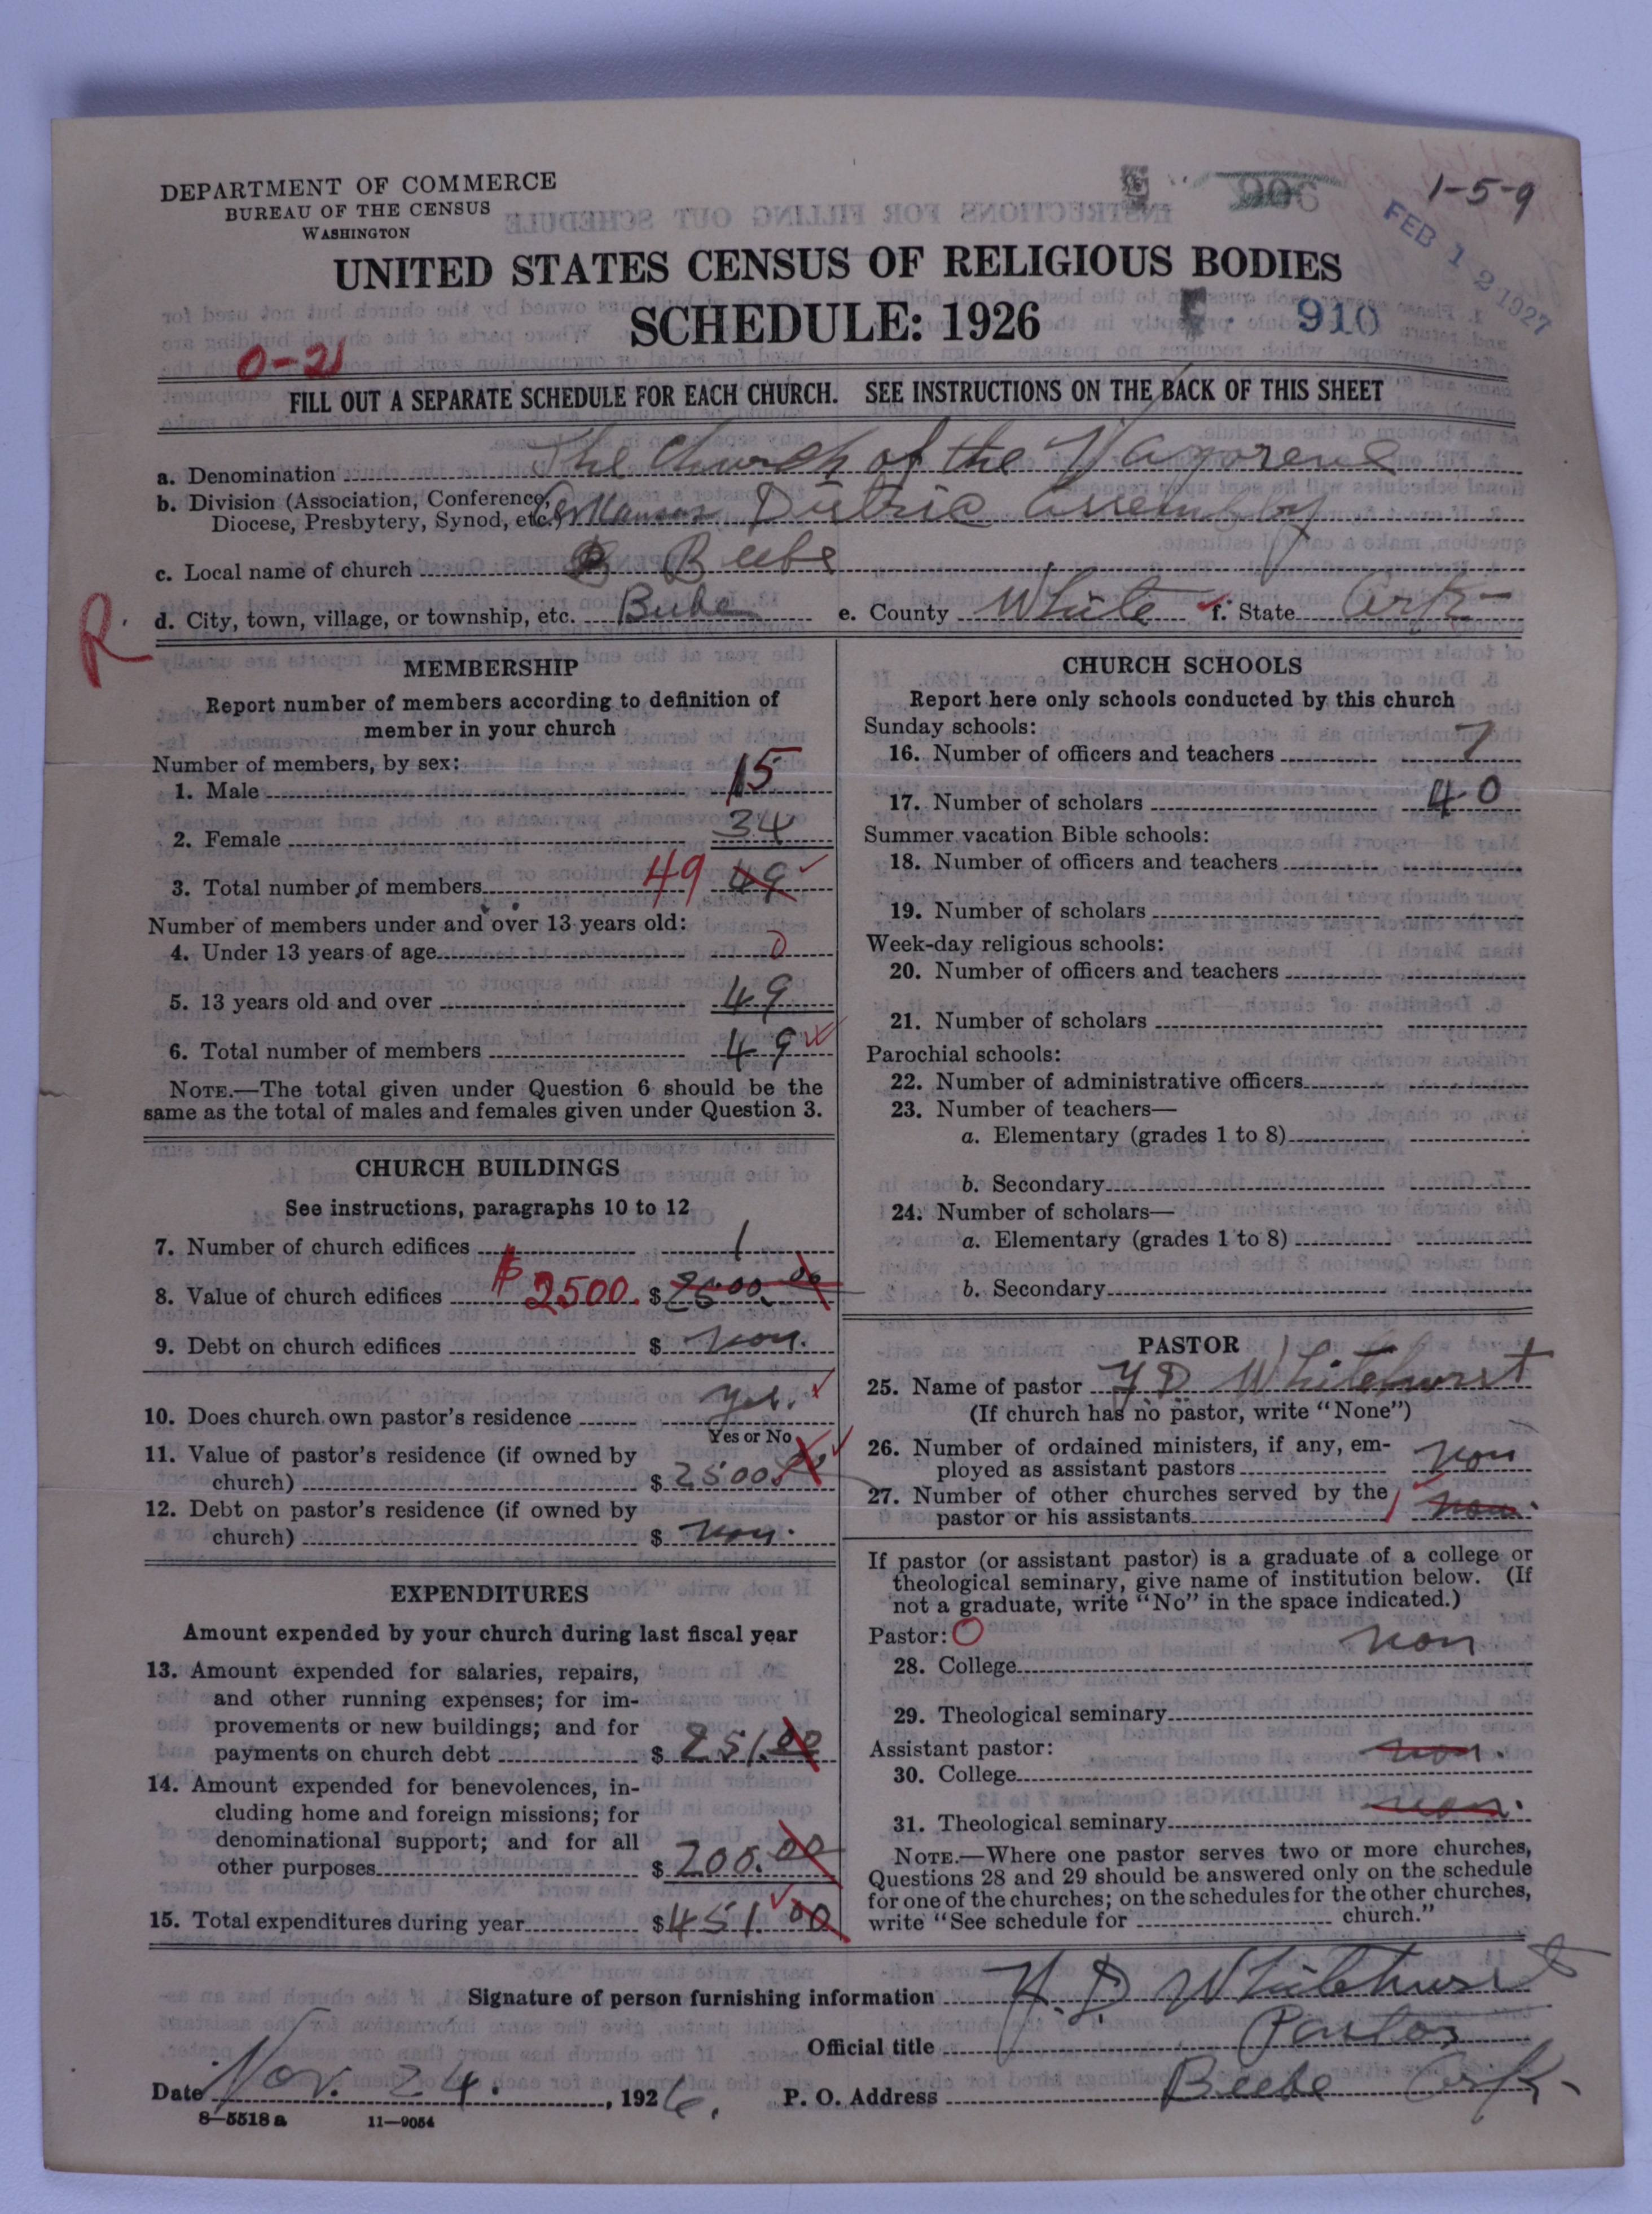 DEPARTMENT OF COMMERCE
BUREAU OF THE CENSUS
WASHINGTON
1-5-9
FEB 12 1927
UNITED STATES CENSUS OF RELIGIOUS BODIES
SCHEDULE: 1926
910
0-21
FILL OUT A SEPARATE SCHEDULE FOR EACH CHURCH. SEE INSTRUCTIONS ON THE BACK OF THIS SHEET
a. Denomination The Church of the Nazorene
b. Division (Association, Conference,
Diocese, Presbytery, Synod, etc.) Arkansas Distric Assembly
c. Local name of church Beebe
R. d. City, town, village, or township, etc. Beebe e. County White f. State Ark
MEMBERSHIP
Report number of members according to definition of
member in your church
Number of members, by sex:
1. Male 15
2. Female 34
3. Total number of members 49 49
Number of members under and over 13 years old:
4. Under 13 years of age 0
5. 13 years old and over 49
6. Total number of members 49
NOTE.—The total given under Question 6 should be the
same as the total of males and females given under Question 3.
CHURCH BUILDINGS
See instructions, paragraphs 10 to 12
7. Number of church edifices 1
8. Value of church edifices $2500. $2500.00
9. Debt on church edifices $ non.
10. Does church own pastor's residence yes.
Yes or No
11. Value of pastor's residence (if owned by
church) $ 2500.00
12. Debt on pastor's residence (if owned by
church) $ non.
EXPENDITURES
Amount expended by your church during last fiscal year
13. Amount expended for salaries, repairs,
and other running expenses; for im-
provements or new buildings; and for
payments on church debt $ 251.00
14. Amount expended for benevolences, in-
cluding home and foreign missions; for
denominational support; and for all
other purposes $ 200.00
15. Total expenditures during year $451.00
CHURCH SCHOOLS
Report here only schools conducted by this church
Sunday schools:
16. Number of officers and teachers 7
17. Number of scholars 40
Summer vacation Bible schools:
18. Number of officers and teachers
19. Number of scholars
Week-day religious schools:
20. Number of officers and teachers
21. Number of scholars
Parochial schools:
22. Number of administrative officers
23. Number of teachers—
a. Elementary (grades 1 to 8)
b. Secondary
24. Number of scholars—
a. Elementary (grades 1 to 8)
b. Secondary
PASTOR
25. Name of pastor Y D Whitehurst
(If church has no pastor, write "None")
26. Number of ordained ministers, if any, em-
ployed as assistant pastors non
27. Number of other churches served by the
pastor or his assistants 1 non.
If pastor (or assistant pastor) is a graduate of a college or
theological seminary, give name of institution below. (If
not a graduate, write "No" in the space indicated.)
Pastor: O
28. College non
29. Theological seminary
Assistant pastor:
30. College non.
31. Theological seminary non.
NOTE.—Where one pastor serves two or more churches,
Questions 28 and 29 should be answered only on the schedule
for one of the churches; on the schedules for the other churches,
write "See schedule for church."
Signature of person furnishing information Y. D Whitehurst
Official title Pastor
Date Nov. 24. , 1926. P. O. Address Beebe Ark.
8—5518 a 11—9054